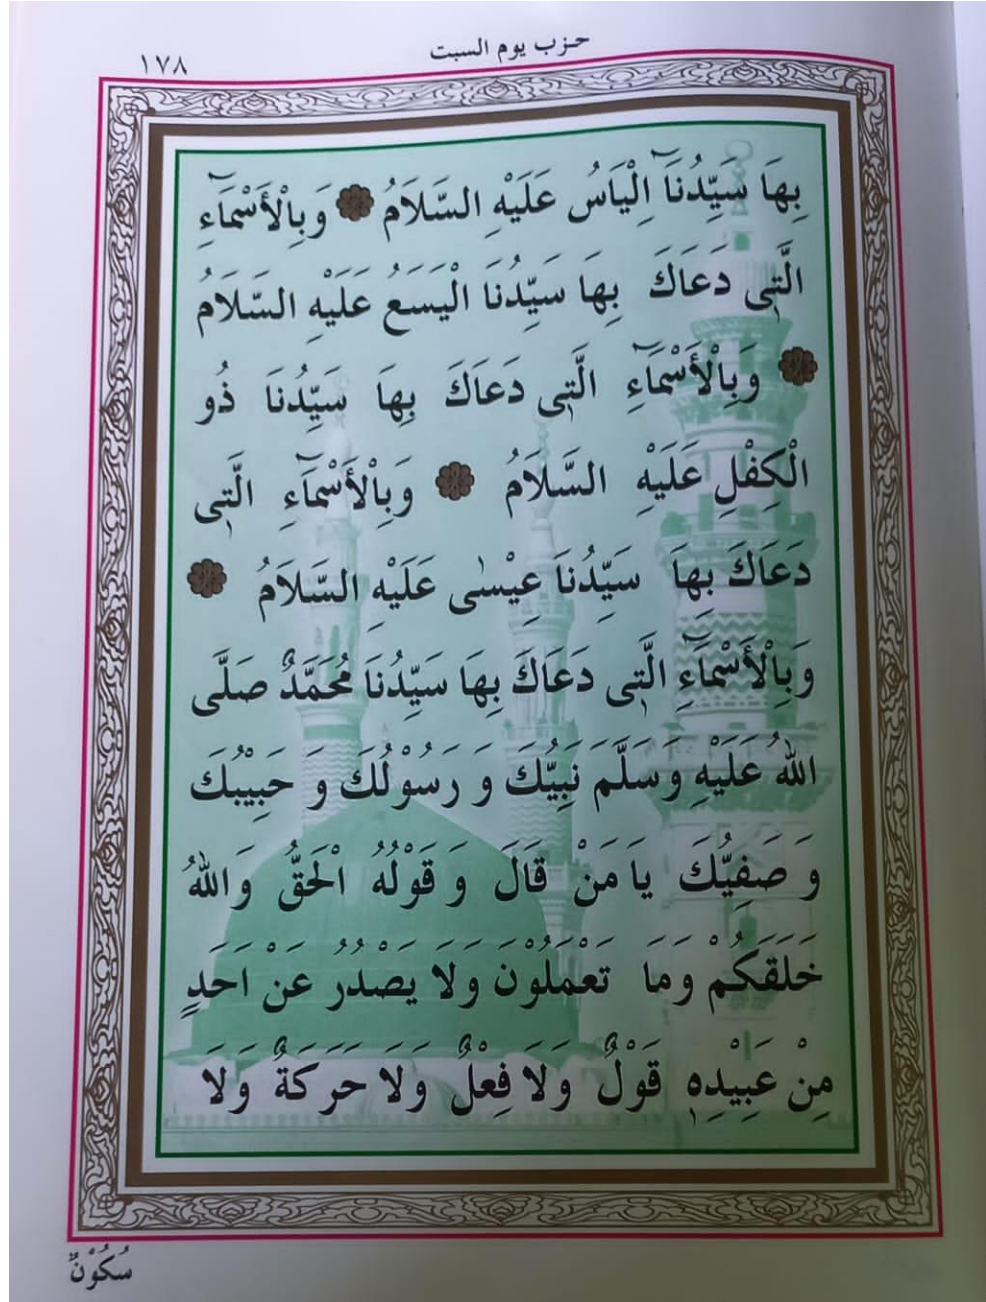 حزب يوم السبت
١٧٨
بِهَا سَيِّدُنَآ اِلْيَاسُ عَلَيْهِ السَّلَامُ وَبِالْأَسْمَآءِ
الَّتِى دَعَاكَ بِهَا سَيِّدُنَا الْيَسَعُ عَلَيْهِ السَّلَامُ
وَبِالْأَسْمَآءِ الَّتِى دَعَاكَ بِهَا سَيِّدُنَا ذُو
الْكِفْلِ عَلَيْهِ السَّلَامُ وَبِالْأَسْمَآءِ الَّتِى
دَعَاكَ بِهَا سَيِّدُنَا عِيْسٰى عَلَيْهِ السَّلَامُ
وَبِالْأَسْمَآءِ الَّتِى دَعَاكَ بِهَا سَيِّدُنَا مُحَمَّدٌ صَلَّى
اللهُ عَلَيْهِ وَسَلَّمَ نَبِيُّكَ وَ رَسُوْلُكَ وَ حَبِيْبُكَ
وَ صَفِيُّكَ يَا مَنْ قَالَ وَ قَوْلُهُ الْحَقُّ وَاللهُ
خَلَقَكُمْ وَمَا تَعْمَلُوْنَ وَلَا يَصْدُرُ عَنْ اَحَدٍ
مِنْ عَبِيْدِهٖ قَوْلٌ وَلَا فِعْلٌ وَلَا حَرَكَةٌ وَلَا
سُكُوْنٌ